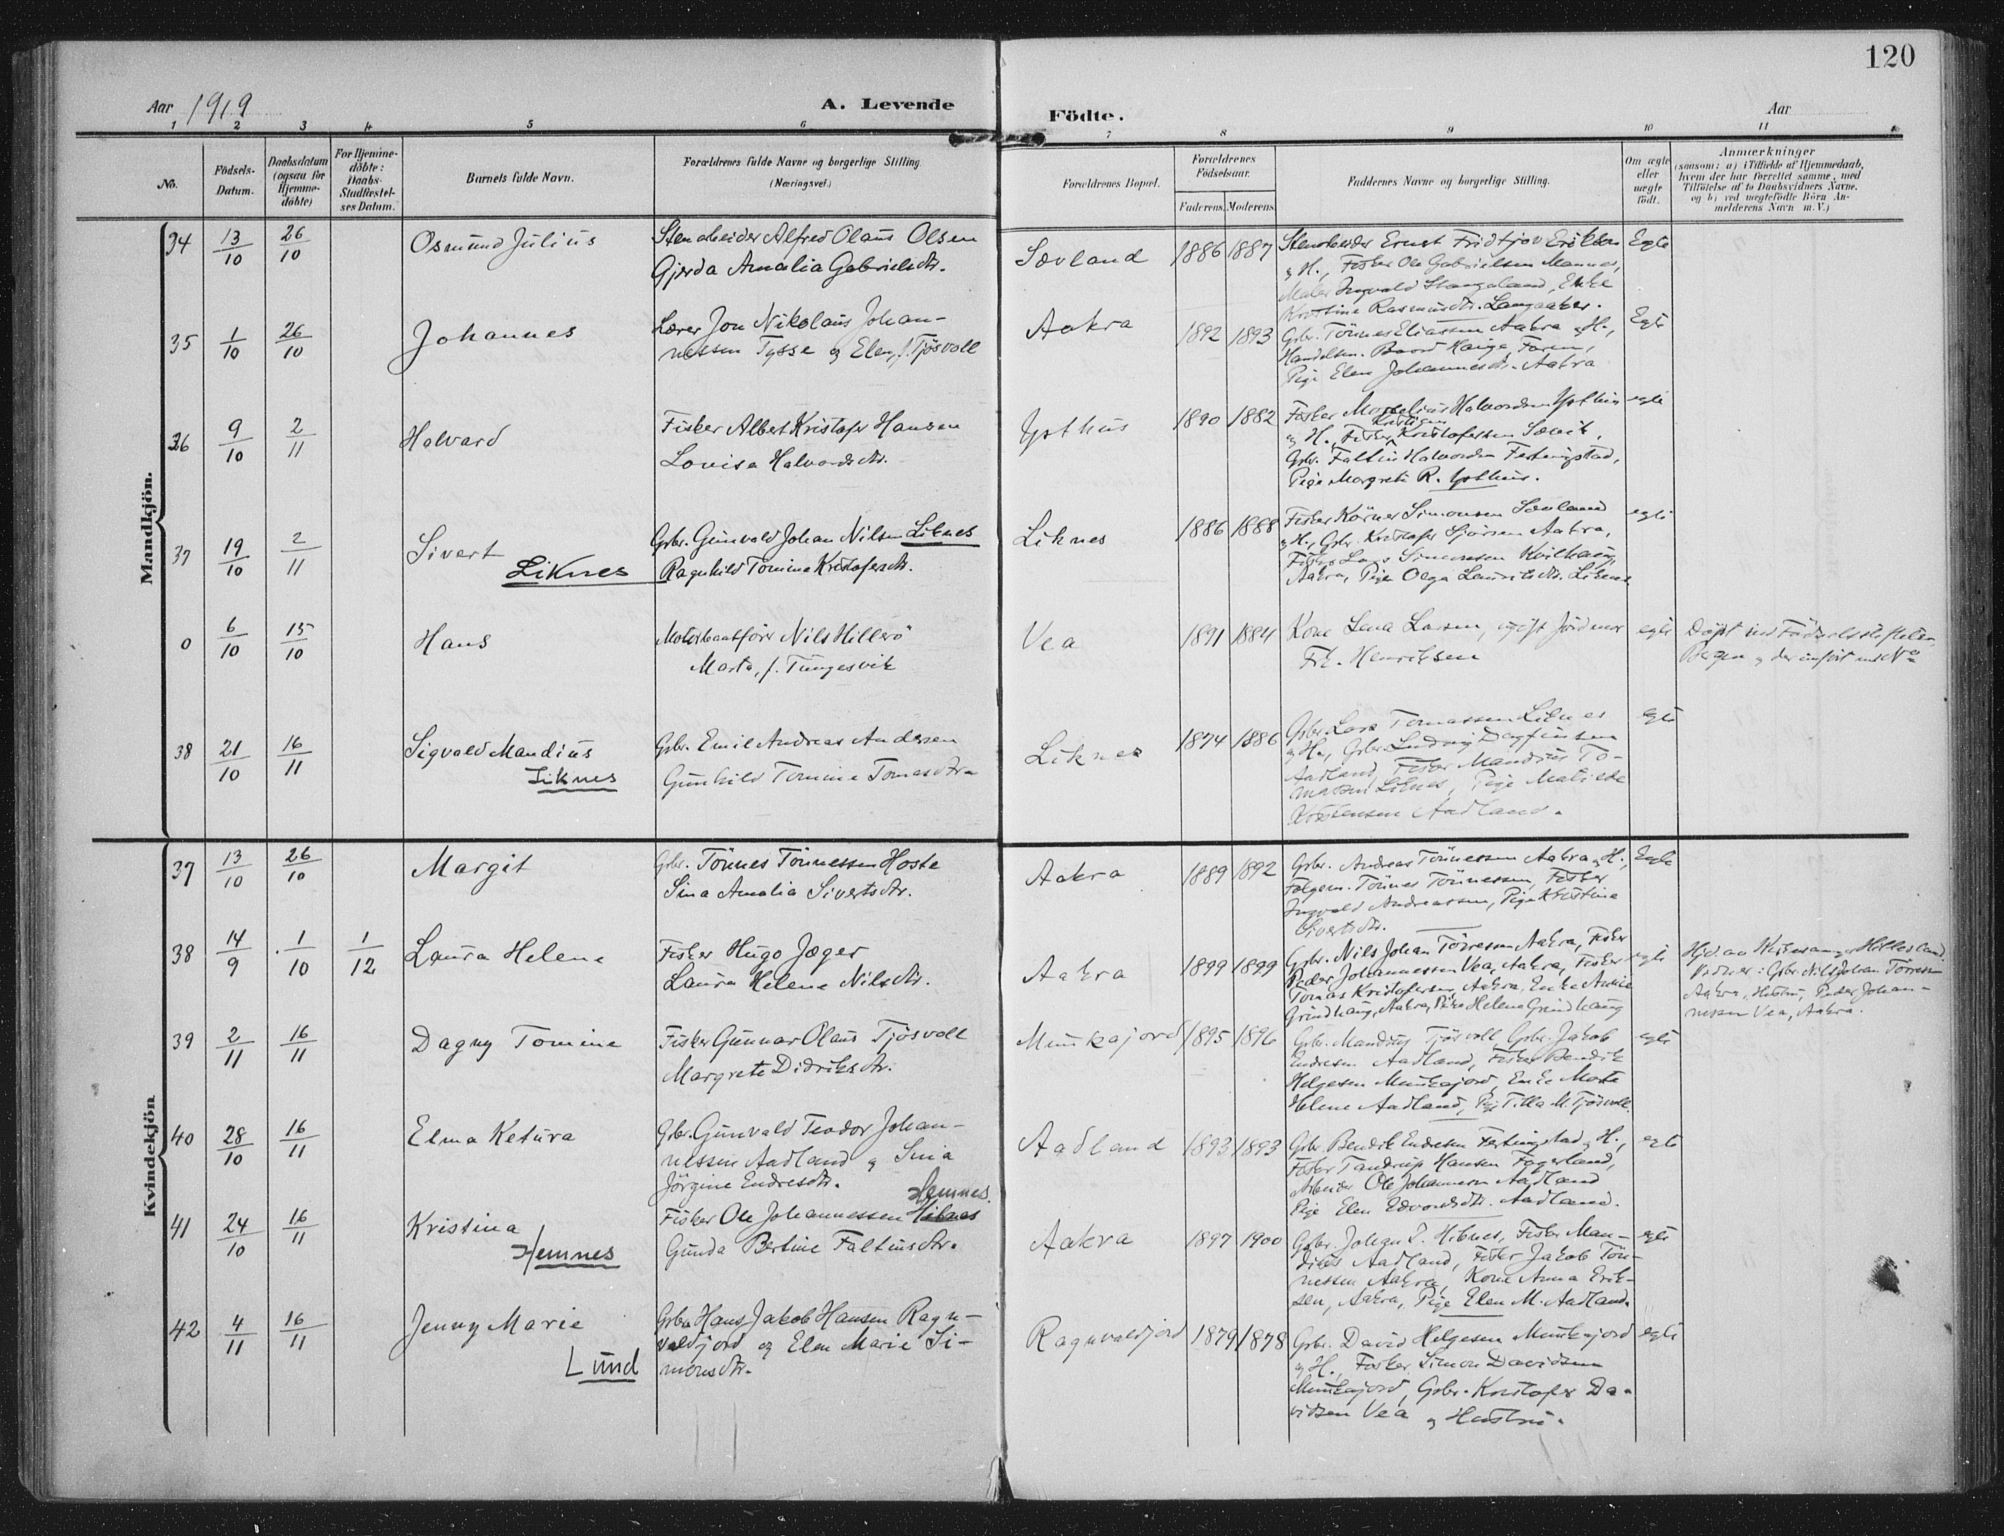 120
Aar 1919
A. Levende
Födte.
Aar
1 2 3 4 5 6 7 8 9 10 11
No.
Födsels-Datum.
Daabsdatum (ogsaa for Hjemme-döbte)
For Hjemme-döbte: Daabs-Stadfæstel-ses Datum.
Barnets fulde Navn.
Forældrenes fulde Navne og borgerlige Stilling.
(Næringsvei.)
Forældrenes Bopæl.
Forældrenes Födselsaar.
Faderens. Moderens.
Faddernes Navne og borgerlige Stilling.
Om ægte eller uægte födt.
Anmærkninger
(saasom: a) i Tilfælde af Hjemmedaab,
hvem der har forrettet samme, med
Tilföielse af to Daabsvidners Navne,
og b) ved uægtefödte Börn An-
melderens Navn m. V.)
Mandkjön.
34 13/10 26/10 Osmund Julius
Stenarbeider Alfred Olaus Olsen
Gjerda Amalia Gabrielsdtr.
Sævland 1886 1887
Stenarbeider Ernst Fridtjov Eriksen
og H., Fisker Ole Gabrielsen Mannes,
Maler Ingvald Stangeland, Enke
Kristine Rasmusdtr. Langaaker.
Egte
35 1/10 26/10 Johannes
Lærer Jon Nikolaus Johan-
nessen Tysse og Elen, f. Tjösvoll
Aakra 1892 1893
Gbr. Tönnes Eliassen Aakra og H.,
Handelsm. Baard Hauge, Faren,
Pige Elen Johannesdtr. Aakra
Egte
36 9/10 2/11 Halvard
Fisker Albert Kristofer Hansen
Lovisa Halvardsdtr.
Ysthus 1890 1882
Fisker Halvordsen Ysthus
og H., Fisker Kristian Kristofersen Sævik,
Gbr. Faltin Halvorsen Ferkingstad,
Pige Margrete R. Ysthus.
egte
37 19/10 2/11 Sivert
Liknes
Gbr. Gunvald Johan Nilsen Liknes
Ragnhild Tomine Kristofersdtr.
Liknes 1886 1888
Fisker Körner Simonsen Sævland
og H., Gbr. Kristofer Aakra,
Fisker Lars Simonsen Kvilhaug,
Aakra, Pige Olga Lauritsdtr. Liknes
egte
0 6/10 15/10 Hans
Motorbaatförer Nils Hillerö
Marta, f. Tungesvik
Vea 1891 1884
Kone Lena Larsen, ugift Jordmor
Frk. Henriksen
egte
Döpt ved Födselsstiftelsen
Bergen og der inført
38 21/10 16/11 Sigvald Mandius
Liknes
Gbr. Emil Andreas Andersen
Gunhild Tomine Tomasdtr.
Liknes 1874 1886
Gbr. Lars Tomassen Liknes
og H., Gbr. Ludvig Dagfinsen
Aadland, Fisker Mandius To-
massen Liknes, Pige Matilde
Kristensen Aadland.
egte
Kvindekjön
37 13/10 26/10 Margit
Gbr. Tönnes Tönnessen Hoste
Sina Amalia Sivertsdtr.
Aakra 1889 1892
Gbr. Andreas Tönnessen Aakra og H.,
Folgem. Tönnes Tönnessen, Fisker
Ingvald Andreassen, Pige Kristine
Sivertsdtr.
Egte
38 14/9 1/10 1/12 Laura Helene
Fisker Hugo Jæger
Laura Helene Nilsdtr.
Aakra 1899 1899
Gbr. Nils Johan Törressen Aakra, Fisker
Peder Johannessen Vea, Aakra, Fisker
Tomas Kristofersen, Aakra, Enke Annie
Grindhaug, Aakra, Pike Helene Grindhaug
egte
Hjd. av Kirkesanger Hillesland.
Vidner: Gbr. Nils Johan Törressen
Aakra, Hustru, Peder Johan-
nessen Vea, Aakra.
39 2/11 16/11 Dagny Tomine
Fisker Gunnar Olaus Tjösvoll
Margrete Didriksdtr.
Munkajord 1895 1896
Gbr. Mandius Tjösvoll, Gbr. Jakob
Endresen Aadland, Fisker Bendik
Helgesen Munkajord, Enke Marta
Helene Aadland, Pige Tilla M. Tjösvoll.
egte
40 28/10 16/11 Elma Ketura
Gbr. Gunvald Teodor Johan-
nessen Aadland og Sina
Jörgine Endresdtr.
Aadland 1893 1893
Gbr. Bendik Endresen Ferkingstad og H.,
Fisker Tandrup Hansen Fagerland,
Arbeider Ole Johannessen Aadland
Pige Elen Edvardsdtr. Aadland.
egte
41 24/10 16/11 Kristina
Hemnes
Hemnes.
Fisker Ole Johannessen Hibnes
Gunda Bertine Faltinsdtr.
Aakra 1897 1900
Gbr. Johan T. Hibnes, Fisker Man-
dius Aadland, Fisker Jakob Tön-
nessen Aakra, Kone Anna Erik-
sen, Aakra, Pige Elen M. Aadland.
egte
42 4/11 16/11 Jenny Marie
Lund
Gbr. Hans Jakob Hansen Ragn-
valdjord og Elen Marie Si-
monsdtr.
Ragnvaldjord 1879 1878
Gbr. David Helgesen Munkajord
og H., Fisker Simon Davidsen
Munkajord, Gbr. Kristofer Da-
vidsen Vea og Hustru.
egte